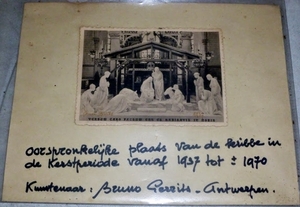 oorspronkelijke plaats van de kribbe in
de Kerstperiode vanaf 1937 tot ± 1970
Kunstenaar: Bruno Gerrits - Antwerpen.